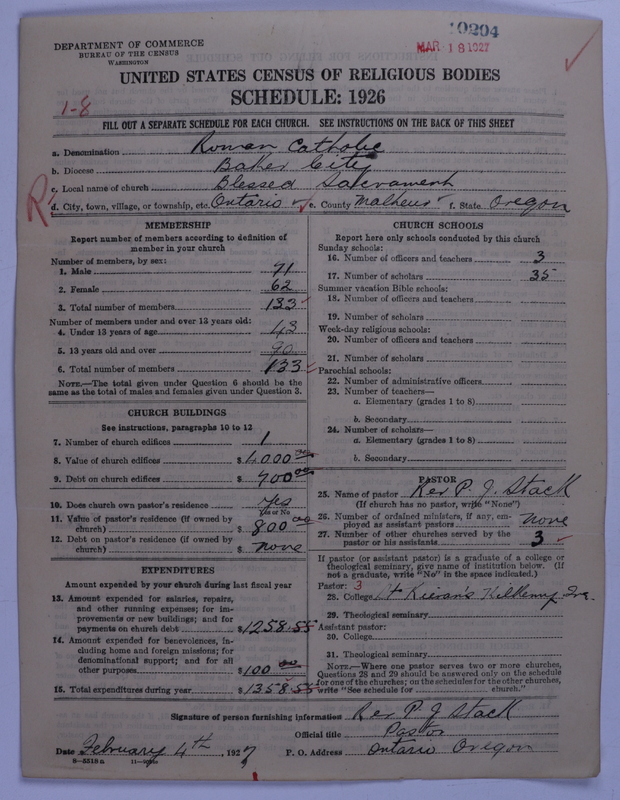 10204
MAR 18 1927
DEPARTMENT OF COMMERCE
BUREAU OF THE CENSUS
WASHINGTON
UNITED STATES CENSUS OF RELIGIOUS BODIES
SCHEDULE: 1926
1-8
FILL OUT A SEPARATE SCHEDULE FOR EACH CHURCH. SEE INSTRUCTIONS ON THE BACK OF THIS SHEET
a. Denomination Roman Catholic
b. Diocese Baker City
c. Local name of church Blessed Sacrament
R
d. City, town, village, or township, etc. Ontario e. County Malheur f. State Oregon
MEMBERSHIP
Report number of members according to definition of
member in your church
Number of members, by sex:
1. Male 71
2. Female 62
3. Total number of members 133
Number of members under and over 13 years old:
4. Under 13 years of age 43
5. 13 years old and over 90
6. Total number of members 133
NOTE.—The total given under Question 6 should be the
same as the total of males and females given under Question 3.
CHURCH BUILDINGS
See instructions, paragraphs 10 to 12
7. Number of church edifices 1
8. Value of church edifices $ 4000 00
9. Debt on church edifices $ 700 00
10. Does church own pastor's residence yes
(Yes or No)
11. Value of pastor's residence (if owned by
church) $ 800 00
12. Debt on pastor's residence (if owned by
church) $ none
EXPENDITURES
Amount expended by your church during last fiscal year
13. Amount expended for salaries, repairs,
and other running expenses; for im-
provements or new buildings; and for
payments on church debt $1258.55
14. Amount expended for benevolences, in-
cluding home and foreign missions; for
denominational support; and for all
other purposes $100 00
15. Total expenditures during year $1358.55
CHURCH SCHOOLS
Report here only schools conducted by this church
Sunday schools:
16. Number of officers and teachers 3
17. Number of scholars 35
Summer vacation Bible schools:
18. Number of officers and teachers
19. Number of scholars
Week-day religious schools:
20. Number of officers and teachers
21. Number of scholars
Parochial schools:
22. Number of administrative officers
23. Number of teachers—
a. Elementary (grades 1 to 8)
b. Secondary
24. Number of scholars—
a. Elementary (grades 1 to 8)
b. Secondary
PASTOR
25. Name of pastor Rev P. J. Stack
(If church has no pastor, write "None")
26. Number of ordained ministers, if any, em-
ployed as assistant pastors none
27. Number of other churches served by the
pastor or his assistants 3
If pastor (or assistant pastor) is a graduate of a college or
theological seminary, give name of institution below. (If
not a graduate, write "No" in the space indicated.)
Pastor: 3
28. College St Kieran's Kilkenny Ire.
29. Theological seminary
Assistant pastor:
30. College
31. Theological seminary
NOTE.—Where one pastor serves two or more churches,
Questions 28 and 29 should be answered only on the schedule
for one of the churches; on the schedules for the other churches,
write "See schedule for church."
Signature of person furnishing information Rev P J Stack
Official title Pastor
Date February 4th, 1927 P. O. Address Ontario Oregon